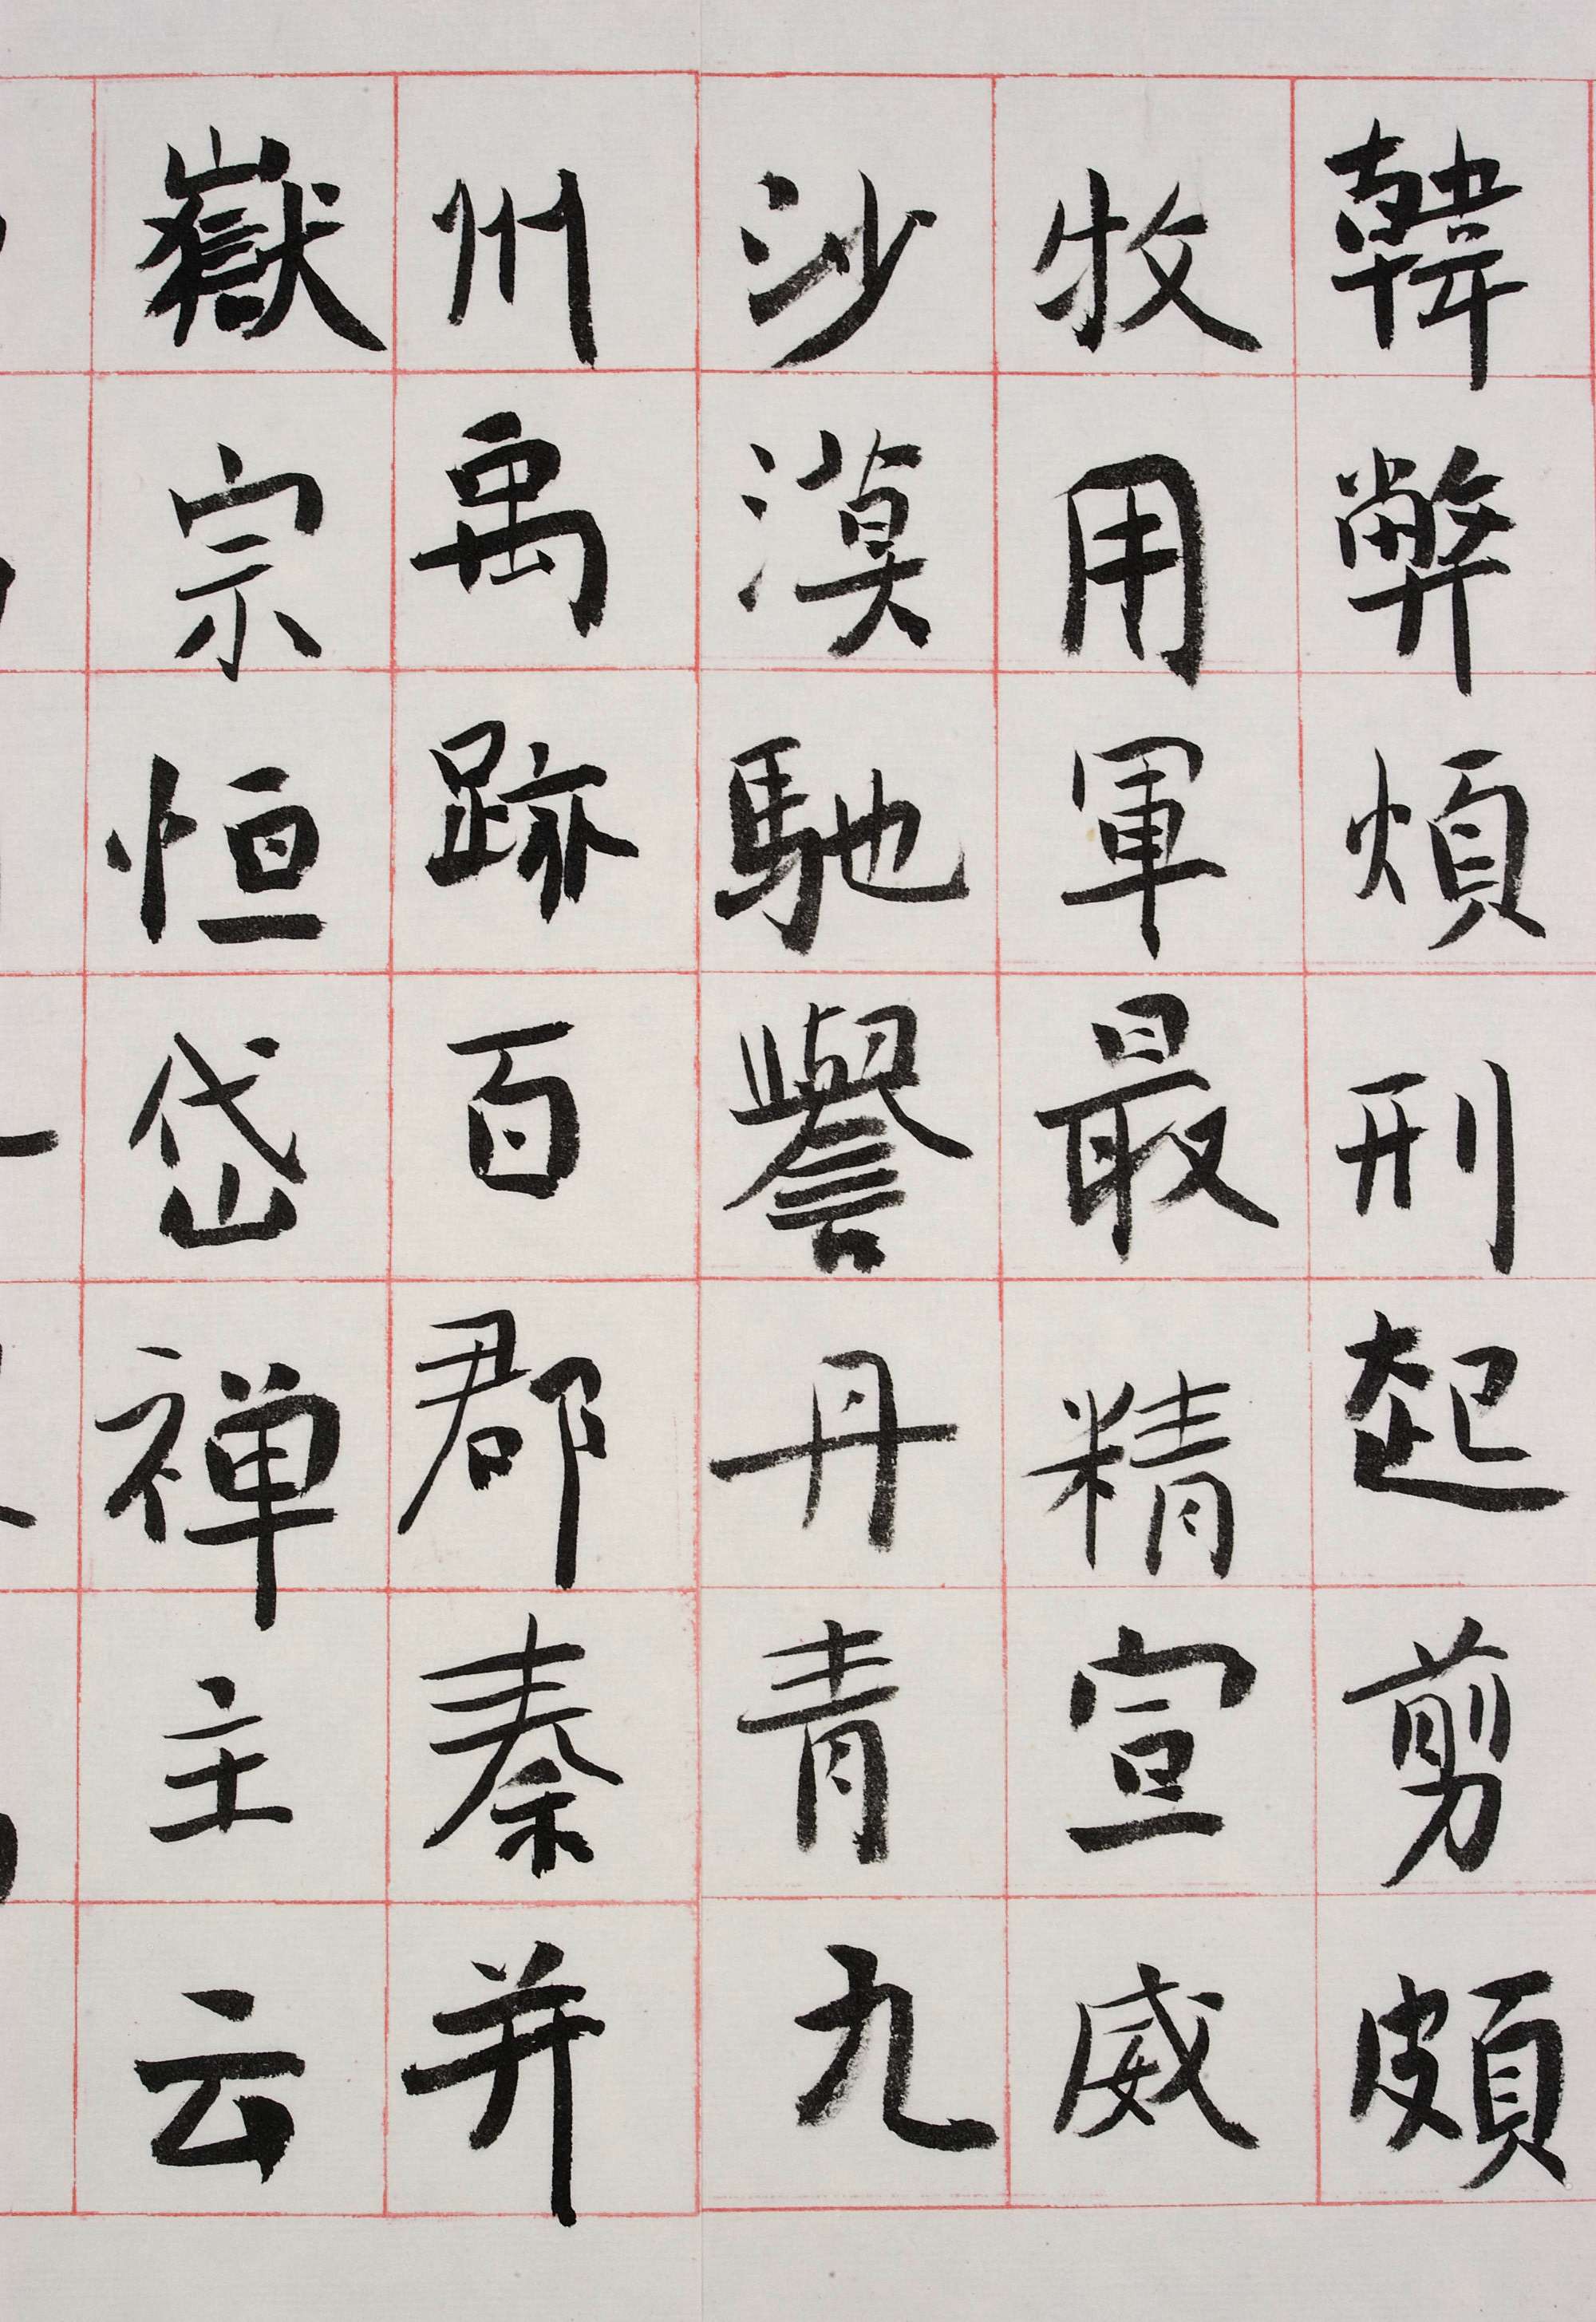 韓弊煩刑起剪頗
牧用軍最精宣威
沙漠馳譽丹青九
州禹跡百郡秦并
嶽宗恒岱禅主云